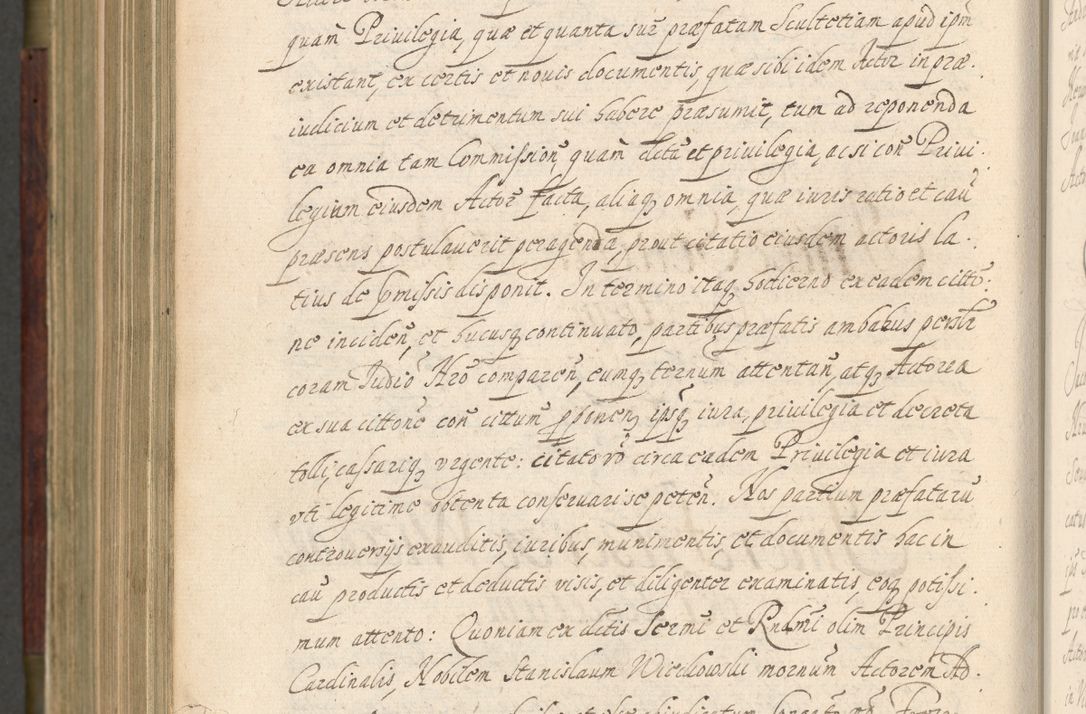 quam Priuilegia, quæ et quanta sup̃ præfatam Scultetiam apud ipm̃
existant, ex certis et nouis documentis, quæ sibi idem Actor in præ-
iudicium et detrimentum sui habere præsumit, tum ad reponenda
ea omnia tam Commission̄ quam dictū et priuilegia, ac si con̄ Priui-
legium eiusdem Actor̄ facta, aliaq; omnia, quæ iuris ratio et cau̅
præsens postulauerit peragenda, prout citatio eiusdem actoris la-
tius de p̄missis disponit. In termino itaq; hodierno ex eadem citt̄o-
ne inciden̄, et hucusq; continuato, partibus præfatis ambabus person̄r
coram Judic̄o Nr̄o comparen̄, eumq; ternum attentan̄, atq; Actorea
ex sua citt̄one con̄ cittum̄ p̱ponen̄, ipsq; iura, priuilegia et decreta
tolli, cassariq; vrgente: citato vō circa eadem Priuilegia et iura
vti legitime obtenta conseruari se peten̄. Nos partium præfatarū
controuersijs exauditis, iuribus, munimentis, et documentis hac in
cau̅ productis et deductis visis, et diligenter examinatis, eoq; potissi-
mum attento: Quoniam ex dictis Serm̄i et Rndm̄i olim Principis
Cardinalis, Nobilem Stanislaum Wieckowski mornum̄ Actorem Ad-